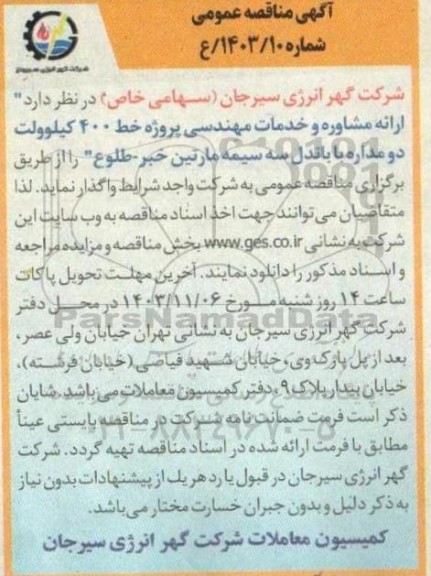 آگهی مناقصه عمومی
شماره ۱۴۰۳/۱۰/ع
شرکت گهر انرژی سیرجان
شرکت گهر انرژی سیرجان (سهامی خاص) در نظر دارد "
ارائه مشاوره و خدمات مهندسی پروژه خط ۴۰۰ کیلوولت
دو مداره با باندل سه سیمه مارتین خبر-طلوع" را از طریق
برگزاری مناقصه عمومی به شرکت واجد شرایط واگذار نماید. لذا
متقاضیان می‌توانند جهت اخذ اسناد مناقصه به وب سایت این
شرکت به نشانی www.ges.co.ir بخش مناقصه و مزایده مراجعه
و اسناد مذکور را دانلود نمایند. آخرین مهلت تحویل پاکات
ساعت ۱۴ روز شنبه مورخ ۱۴۰۳/۱۱/۰۶ در محل دفتر
ParsNamadData
شرکت گهر انرژی سیرجان به نشانی تهران خیابان ولی عصر،
بعد از پل پارک وی، خیابان شهید فیاضی (خیابان فرشته)،
خیابان بیدار پلاک ۹، دفتر کمیسیون معاملات می‌باشد. شایان
ذکر است فرمت ضمانت نامه شرکت در مناقصه بایستی عیناً
۰۲۱-۸۸۳۴۹۶۷۰-۵
مطابق با فرمت ارائه شده در اسناد مناقصه تهیه گردد. شرکت
گهر انرژی سیرجان در قبول یا رد هر یک از پیشنهادات بدون نیاز
به ذکر دلیل و بدون جبران خسارت مختار می‌باشد.
کمیسیون معاملات شرکت گهر انرژی سیرجان